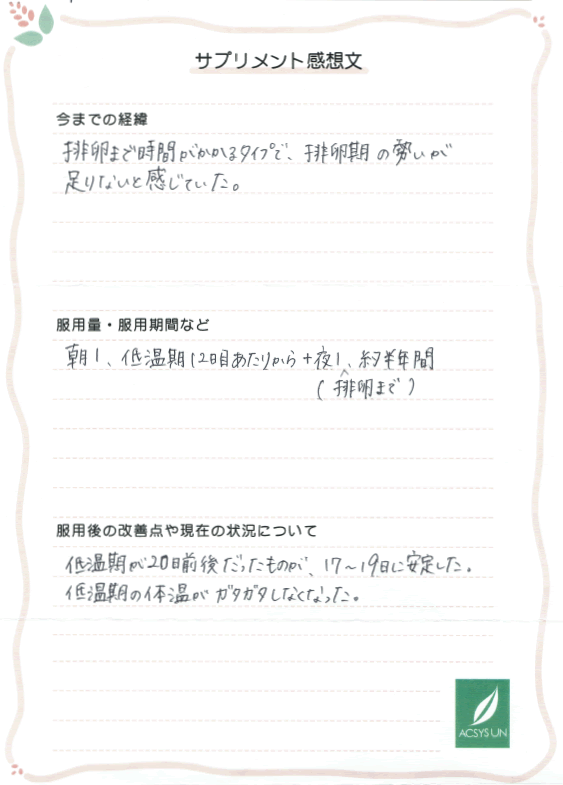 サプリメント感想文
今までの経緯
排卵まで時間がかかるタイプで、排卵期の勢いが
足りないと感じていた。
服用量・服用期間など
朝1、低温期12日目あたりから+夜1、約半年間
(排卵まで)
服用後の改善点や現在の状況について
低温期が20日前後だったものが、17〜19日に安定した。
低温期の体温がガタガタしなくなった。
ACSYSUN